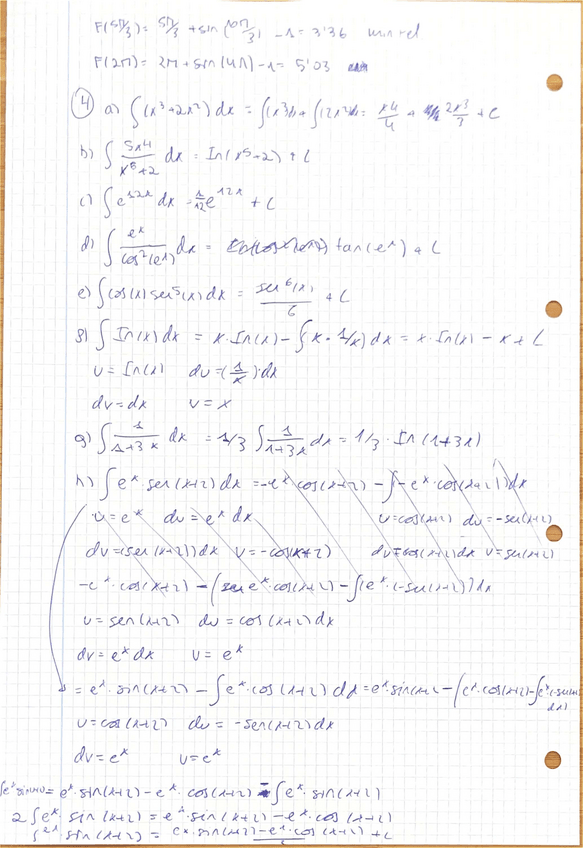 F(5π/3) = 5π/3 + sen (10π/3) - 1 = 3'36 min rel
F(2π) = 2π + sen (4π) - 1 = 5'03
4 a) ∫(x³+2x²) dx = ∫(x³)dx + ∫(2x²)dx = x4/4 + 2x³/3 + C
b) ∫ 5x4/x⁵+2 dx = In(x⁵+2) + C
c) ∫ e^12x dx = 1/12 e^12x + C
d) ∫ e^x/cos²(e^x) dx = tan(e^x) + C
e) ∫ cos(x) sen⁵(x) dx = sen⁶(x)/6 + C
g) ∫ In(x) dx = x·In(x) - ∫(x · 1/x) dx = x·In(x) - x + C
u = In(x) du = (1/x)·dx
dv = dx v = x
g) ∫ 1/1+3x dx = 1/3 ∫ 1/1+3x dx = 1/3 · In (1+3x)
h) ∫ e^x sen (x+2) dx = -e^x cos(x+2) - ∫-e^x·cos(x+2) dx
u = e^x du = e^x dx u = cos(x+2) du = -sen(x+2)
dv = (sen (x+2)) dx v = -cos(x+2) dv = cos(x+2) dx v = sen(x+2)
-e^x·cos(x+2) - ( e^x·cos(x+2) - ∫(e^x·(-sen(x+2)) dx
u = sen (x+2) du = cos (x+2) dx
dv = e^x dx v = e^x
= e^x · sin(x+2) - ∫e^x · cos (x+2) dx = e^x·sin(x+2 - (e^x·cos(x+2) - ∫e^x(-sen(x+2)
dx)
u = cos (x+2) du = -sen(x+2) dx
dv = e^x v = e^x
∫e^x sin(x+2) = e^x · sin(x+2) - e^x · cos(x+2) - ∫e^x · sin(x+2)
2 ∫e^x · sin (x+2) = e^x · sin(x+2) - e^x · cos(x+2)
∫e^x · sin (x+2) = e^x · sin(x+2) - e^x · cos (x+2) + C